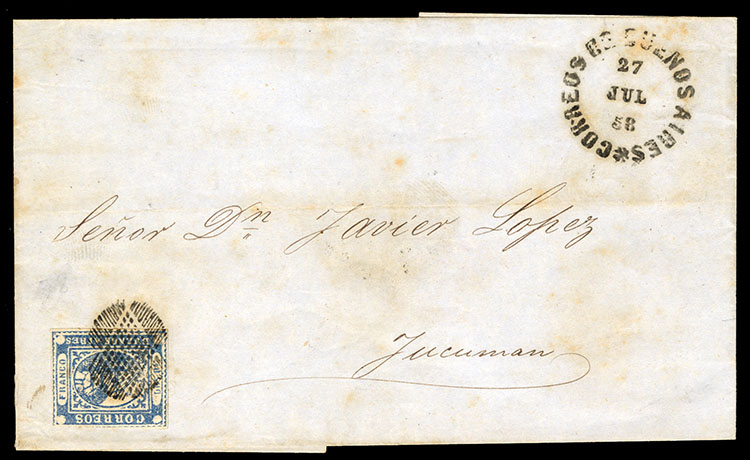 CORREOS DE BUENOS AIRES
27
JUL
58
Señor Dn Javier Lopez
Tucuman
FRANCO
CORREOS